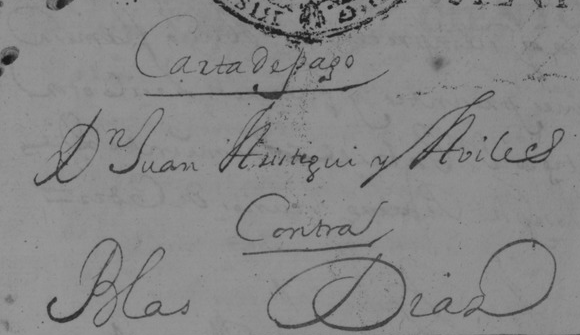 Carta de pago
Dn Juan y Aviles
Contra
Blas Diaz